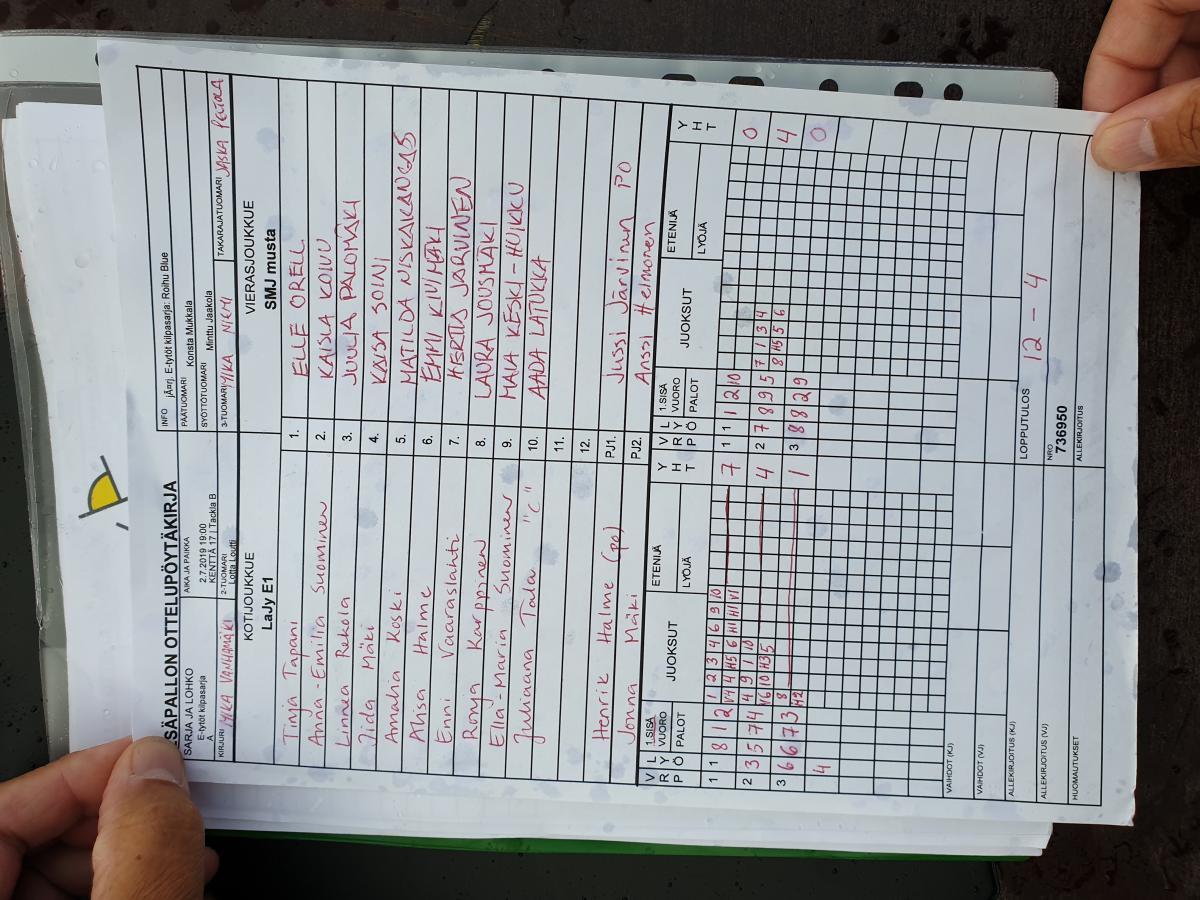 SÄPALLON OTTELUPÖYTÄKIRJA
SARJA JA LOHKO
E-tytöt kilpasarja
A
AIKA JA PAIKKA
2.7.2019 19:00
KENTTÄ 17 | Tackla B
INFO jÄ¤rj. E-tytöt kilpasarja: Roihu Blue
PÄÄTUOMARI Konsta Mukkala
SYÖTTÖTUOMARI Minttu Jaakola
KIRJURI MIKA VANHAMÄKI
2-TUOMARI Lotta Loutti
3-TUOMARI MIKA NIEMI
TAKARAJATUOMARI JASKA PELTOLA
KOTIJOUKKUE
LaJy E1
VIERASJOUKKUE
SMJ musta
Tinja Tapani 1. ELLE ORELL
Anna-Emilia Suominen 2. KAISLA KOIVU
Linnea Rekola 3. JUULIA PALOMÄKI
Iida Mäki 4. KAISA SOINI
Amalia Koski 5. MATILDA NISKAKANGAS
Alisa Halme 6. EMMI KIVIMÄKI
Enni Vaaraslahti 7. HERTTA JÄRVINEN
Ronja Karppinen 8. LAURA JOUSMÄKI
Ella-Maria Suominen 9. MAIA KESKI-HUIKKU
Juliaana Tala "C" 10. AADA LATUKKA
11.
12.
Henrik Halme (po) PJ1. Jussi Järvinen PO
Jonna Mäki PJ2. Anssi Heimonen
V R P L Y Ö 1.SISÄ VUORO PALOT JUOKSUT ETENIJÄ LYÖJÄ Y H T V R P L Y Ö 1.SISÄ VUORO PALOT JUOKSUT ETENIJÄ LYÖJÄ Y H T
1 1 8 1 2 1 2 3 4 6 9 10 7 1 1 1 2 10 0
V4 4 H5 6 H1 H1 V1
2 3 5 7 4 4 9 1 10 4 2 7 8 9 5 7 1 3 4 4
V6 10 H3 5 8 H5 5 6
3 6 6 7 3 8 1 3 8 8 2 9 0
H2
4
VAIHDOT (KJ)
VAIHDOT (VJ)
ALLEKIRJOITUS (KJ)
LOPPUTULOS 12 - 4
ALLEKIRJOITUS (VJ)
NRO
736950
HUOMAUTUKSET
ALLEKIRJOITUS